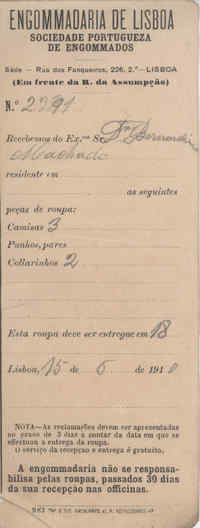 ENGOMMADARIA DE LISBOA
SOCIEDADE PORTUGUEZA
DE ENGOMMADOS
Séde — Rua dos Fanqueiros, 226, 2.º — LISBOA
(Em frente da R. da Assumpção)
N.º 2791
Recebemos do Ex.mo Sr. Dr. Bernardino
Machado
residente em
as seguintes
peças de roupa:
Camisas 3
Punhos, pares
Collarinhos 2
Esta roupa deve ser entregue em 18
Lisboa, 15 de 6 de 1910
NOTA—As reclamações devem ser apresentadas
no praso de 3 dias a contar da data em que se
effectuou a entrega da roupa.
O serviço da recepção e entrega é gratuito.
A engommadaria não se responsa-
bilisa pelas roupas, passados 30 dias
da sua recepção nas officinas.